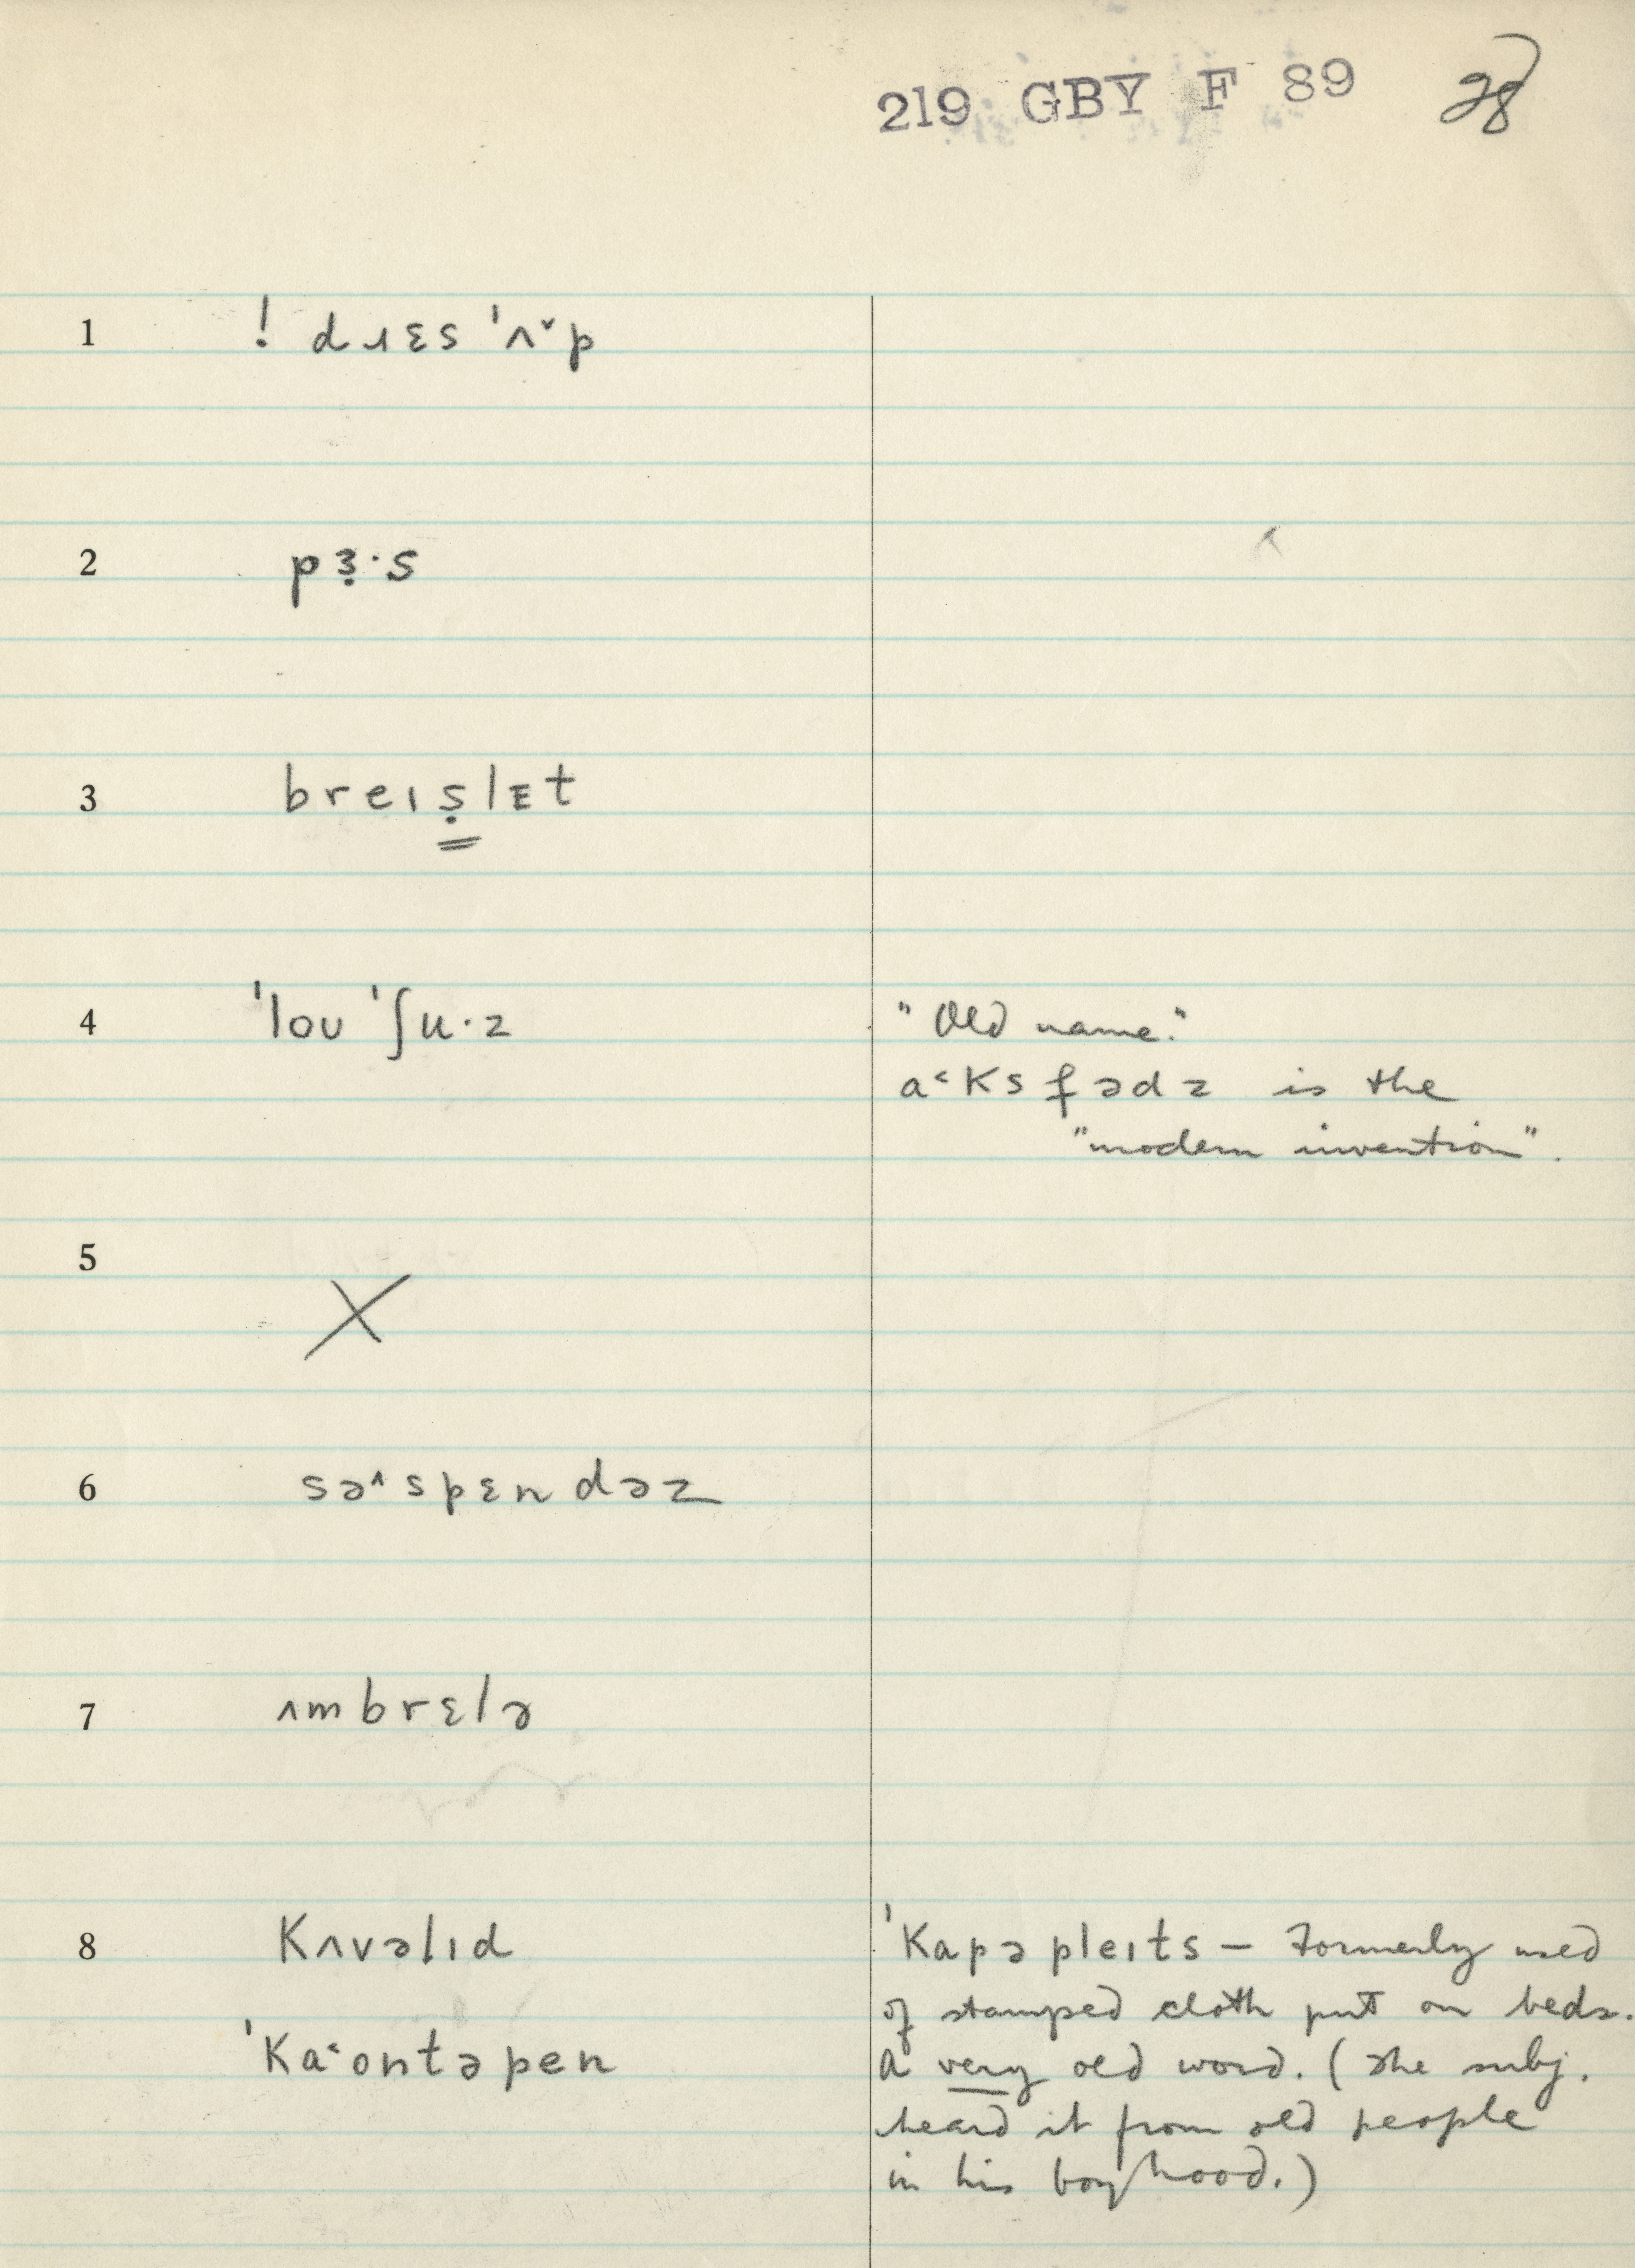 219 GBY F 89 28
1 ! dɹɛs 'ʌˇp
2 pɜ̣·s
3 breɪṣlᴇt
4 'loʊ 'ʃu·z "Old name."
a˂ksfədz is the
"modern invention".
5 X
6 sə˄spɛndəz
7 ʌmbrɛlə
8 Kʌvəlɪd 'Kapəpleɪts – Formerly used
of stamped cloth put on beds.
'Ka˂ontəpen A very old word. (The subj.
heard it from old people
in his boyhood.)